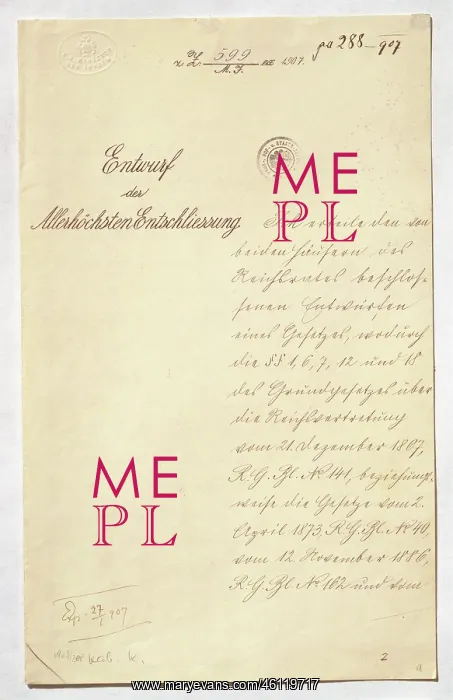 599
M.I.
1907.
pr 288 907
Entwurf
der
Allerhöchsten Entschliessung.
ME
PL
Ich erteile den von
beiden Häusern des
Reichsrates beschlos-
senen Entwürfen
eines Gesetzes, wodurch
die §§ 1, 6, 7, 12 und 18
des Grundgesetzes über
die Reichsvertretung
vom 21. Dezember 1867,
R.G.Bl. No 141, beziehungs-
weise die Gesetze vom 2.
April 1873, R.G.Bl. No 40,
vom 12. November 1886,
R.G.Bl. No 162 und vom
ME
PL
27
907
K.
2
www.maryevans.com/46119717